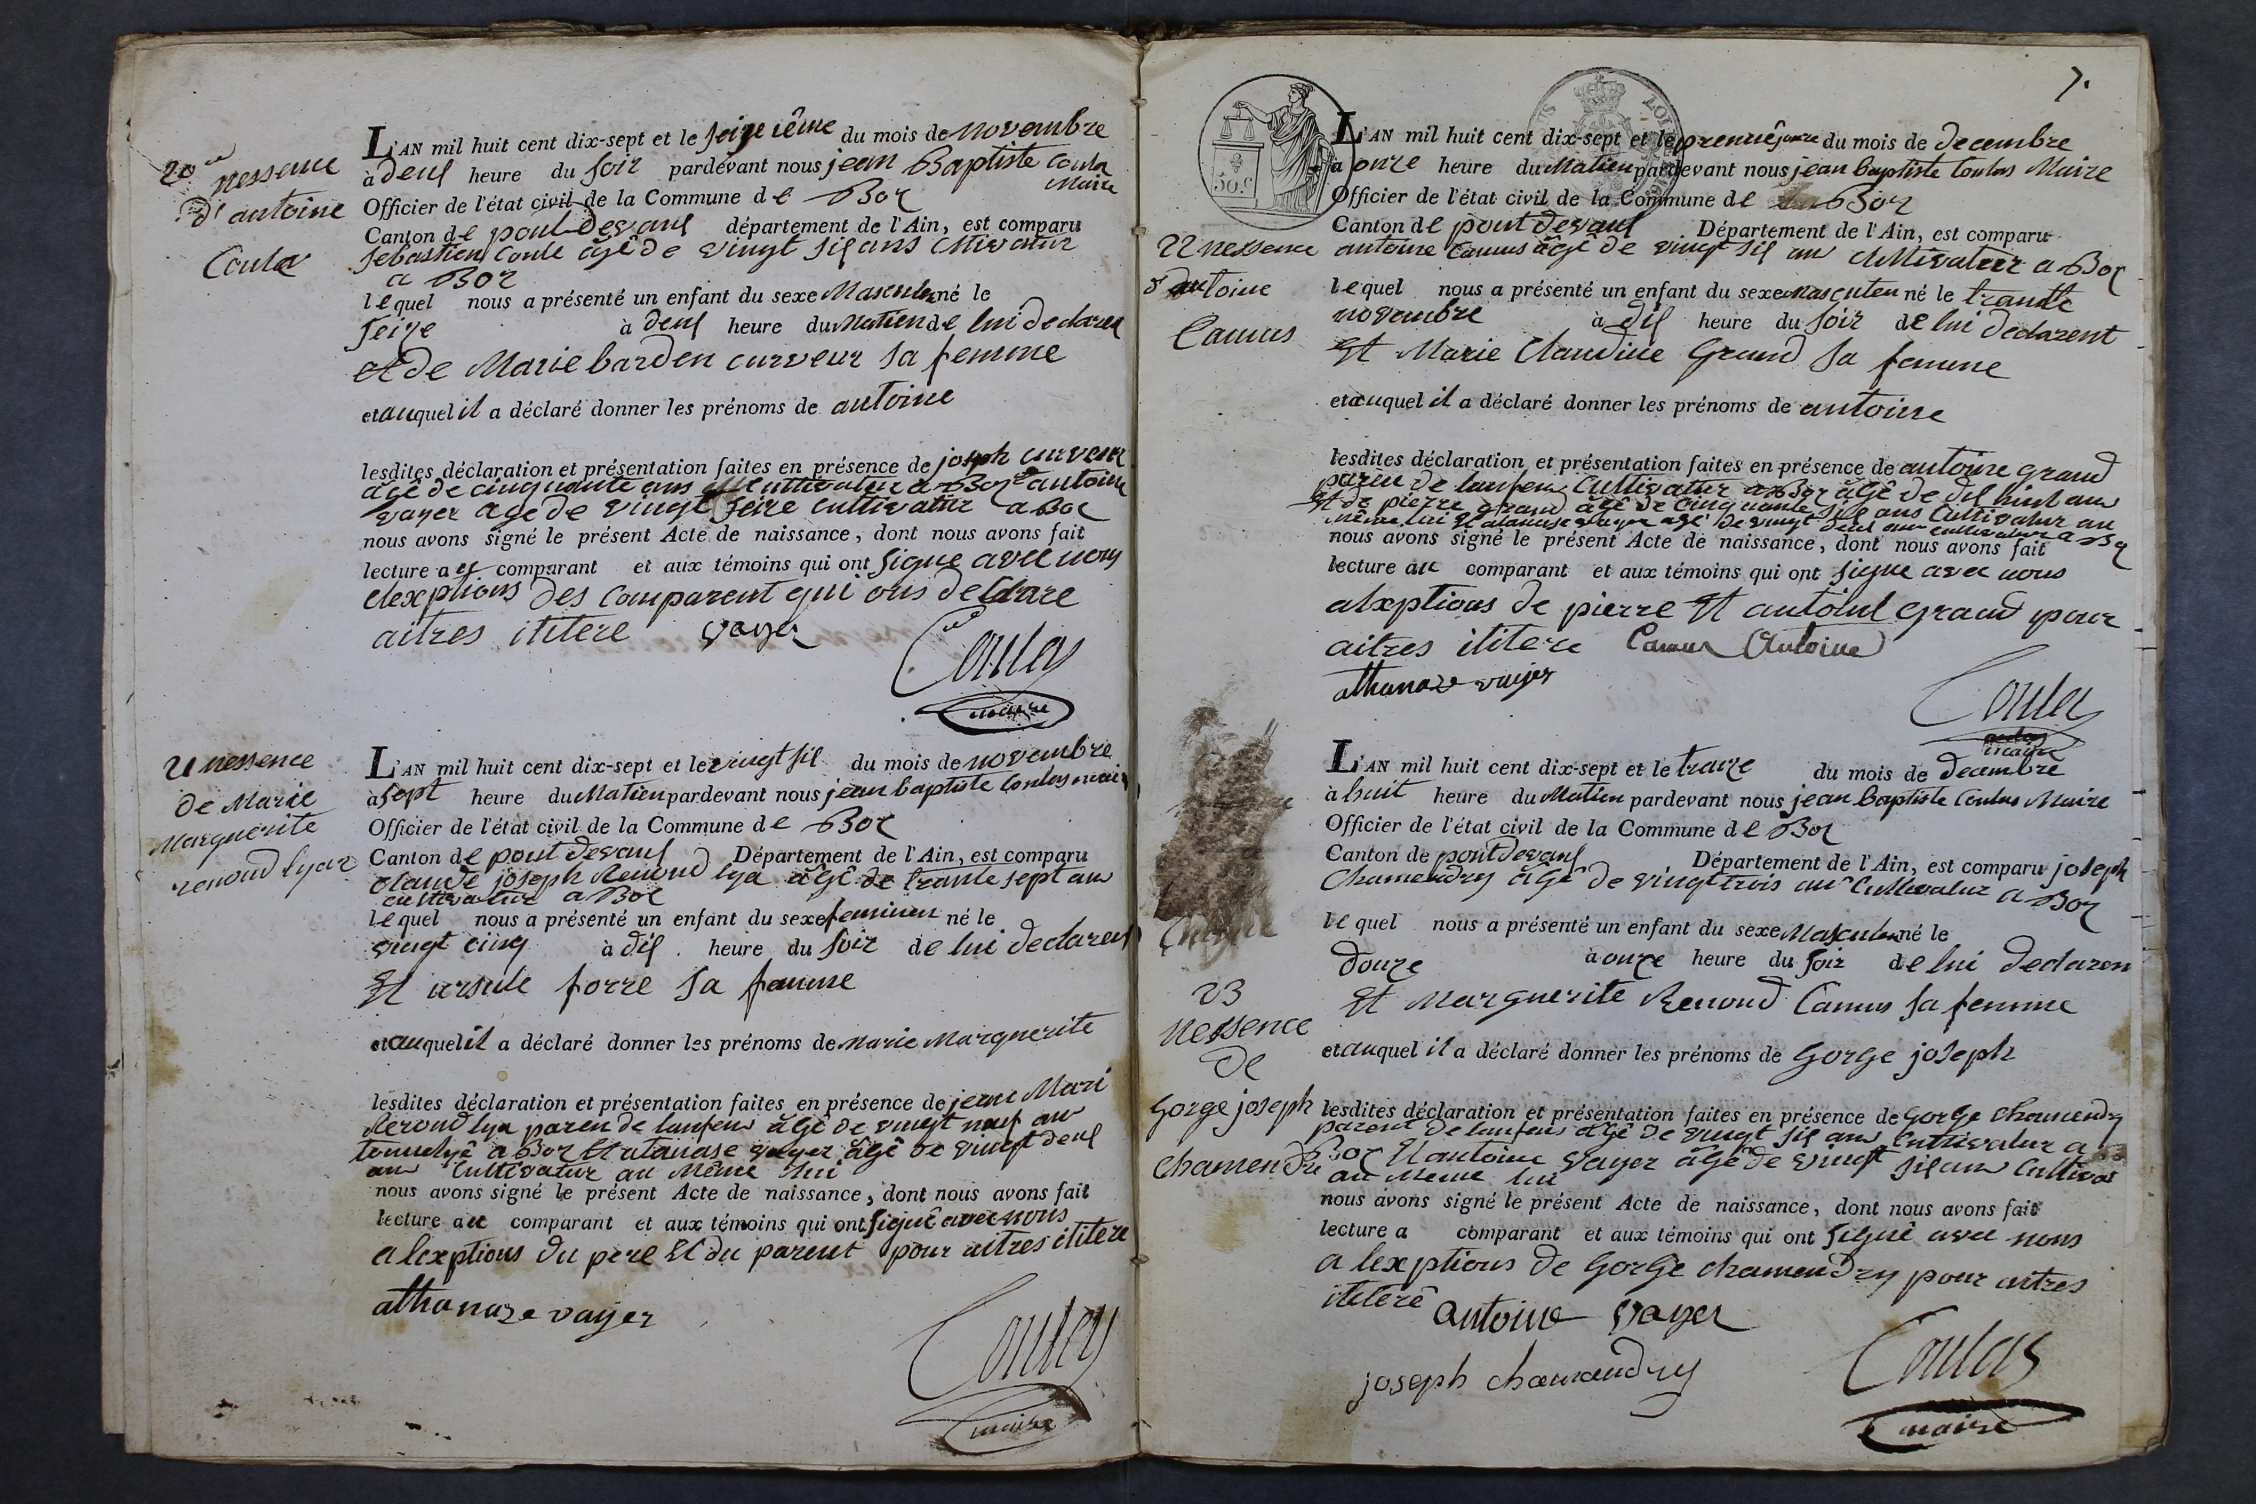 20me nessence
d'antoine
Coula
L'AN mil huit cent dix-sept et le seizeiême du mois de novembre
à deus heure du soir pardevant nous jean Baptiste Coula
Maire
Officier de l'état civil de la Commune de Boz
Canton de pont devaus département de l'Ain, est comparu
sebastien Coule âgê de vingt sis ans
a Boz
lequel nous a présenté un enfant du sexe né le
seize à deus heure du Matien de lui declaren
et de Marie barden curveur sa femme
et auquel il a déclaré donner les prénoms de antoine
lesdites déclaration et présentation faites en présence de joseph curveur
âgê de cinquante ans cultivateur a Boz et antoine
vayer age de vingt seize cultivatur a Boz
nous avons signé le présent Acte de naissance, dont nous avons fait
lecture au comparant et aux témoins qui ont signe avec nous
elexptions des comparent qui ons declare
aitres ititere vayer
Coulas
maire
21 nessence
de Marie
Marguerite
renoud lyar
L'AN mil huit cent dix-sept et le vingt sis du mois de novembre
à sept heure du Matien pardevant nous jean baptiste Coulas maire
Officier de l'état civil de la Commune de Boz
Canton de pont devaus Département de l'Ain, est comparu
claude joseph Renoud lya âgê de trante sept ans
cultivatur a Boz
lequel nous a présenté un enfant du sexe feminien né le
vingt cinq à dis heure du soir de lui declaren
Et ursule forre sa famme
et auquel il a déclaré donner les prénoms de marie marguerite
lesdites déclaration et présentation faites en présence de jean Mari
Renoud lya paren de lanfens âgê de vingt neuf ans
a Boz Et atanase vayer âgê de vingt deus
ans cultivatur au Même lui
nous avons signé le présent Acte de naissance, dont nous avons fait
lecture au comparant et aux témoins qui ont signê avec nous
a lexptions du pere Et du parent pour aitres ititere
athanaze vayer
Coulas
maire
7.
50c
22 nessence
d'antoine
Camus
L'AN mil huit cent dix-sept et le du mois de decembre
à onze heure du Matien pardevant nous jean baptiste Coulas Maire
Officier de l'état civil de la Commune de Boz
Canton de pont devaus Département de l'Ain, est comparu
antoine Camus âgê de vingt sis ans cultivateur a Boz
lequel nous a présenté un enfant du sexe masculen né le trante
novembre à dis heure du soir de lui declarent
Et Marie Claudine Grand sa femme
et auquel il a déclaré donner les prénoms de antoine
lesdites déclaration et présentation faites en présence de antoine grand
paren de lanfens cultivatur a Boz âgê de dis huit ans
Et de pierre grand âgê de cinquante sis ans cultivatur au
même lui Et atanase vayer âgê de vingt deus ans cultivatur a Boz
nous avons signé le présent Acte de naissance, dont nous avons fait
lecture au comparant et aux témoins qui ont signe avec nous
alxptions de pierre Et antoine grand pour
aitres ititere Camus Antoine
athanaze vayer
Coulas
maire
23
nessence
de
Gorge joseph
chamendri
L'AN mil huit cent dix-sept et le traize du mois de decembre
à huit heure du Matien pardevant nous jean baptiste Coulas Maire
Officier de l'état civil de la Commune de Boz
Canton de pont devaus Département de l'Ain, est comparu joseph
chamendry âgê de vingt trois ans cultivatur a Boz
lequel nous a présenté un enfant du sexe Masculen né le
douze à onze heure du soir de lui declaren
Et Marguerite Renoud Camus sa femme
et auquel il a déclaré donner les prénoms de Gorge joseph
lesdites déclaration et présentation faites en présence de Gorge chamendry
parent de lanfens âgê de vingt sis ans cultivatur a
Boz Et antoine vayer âgê de vingt sis ans cultivat
au Meme lui
nous avons signé le présent Acte de naissance, dont nous avons fait
lecture a comparant et aux témoins qui ont signê avec nous
a lexptions de Gorge chamendry pour aitres
ititerê antoine vayer
joseph chamendry
Coulas
maire